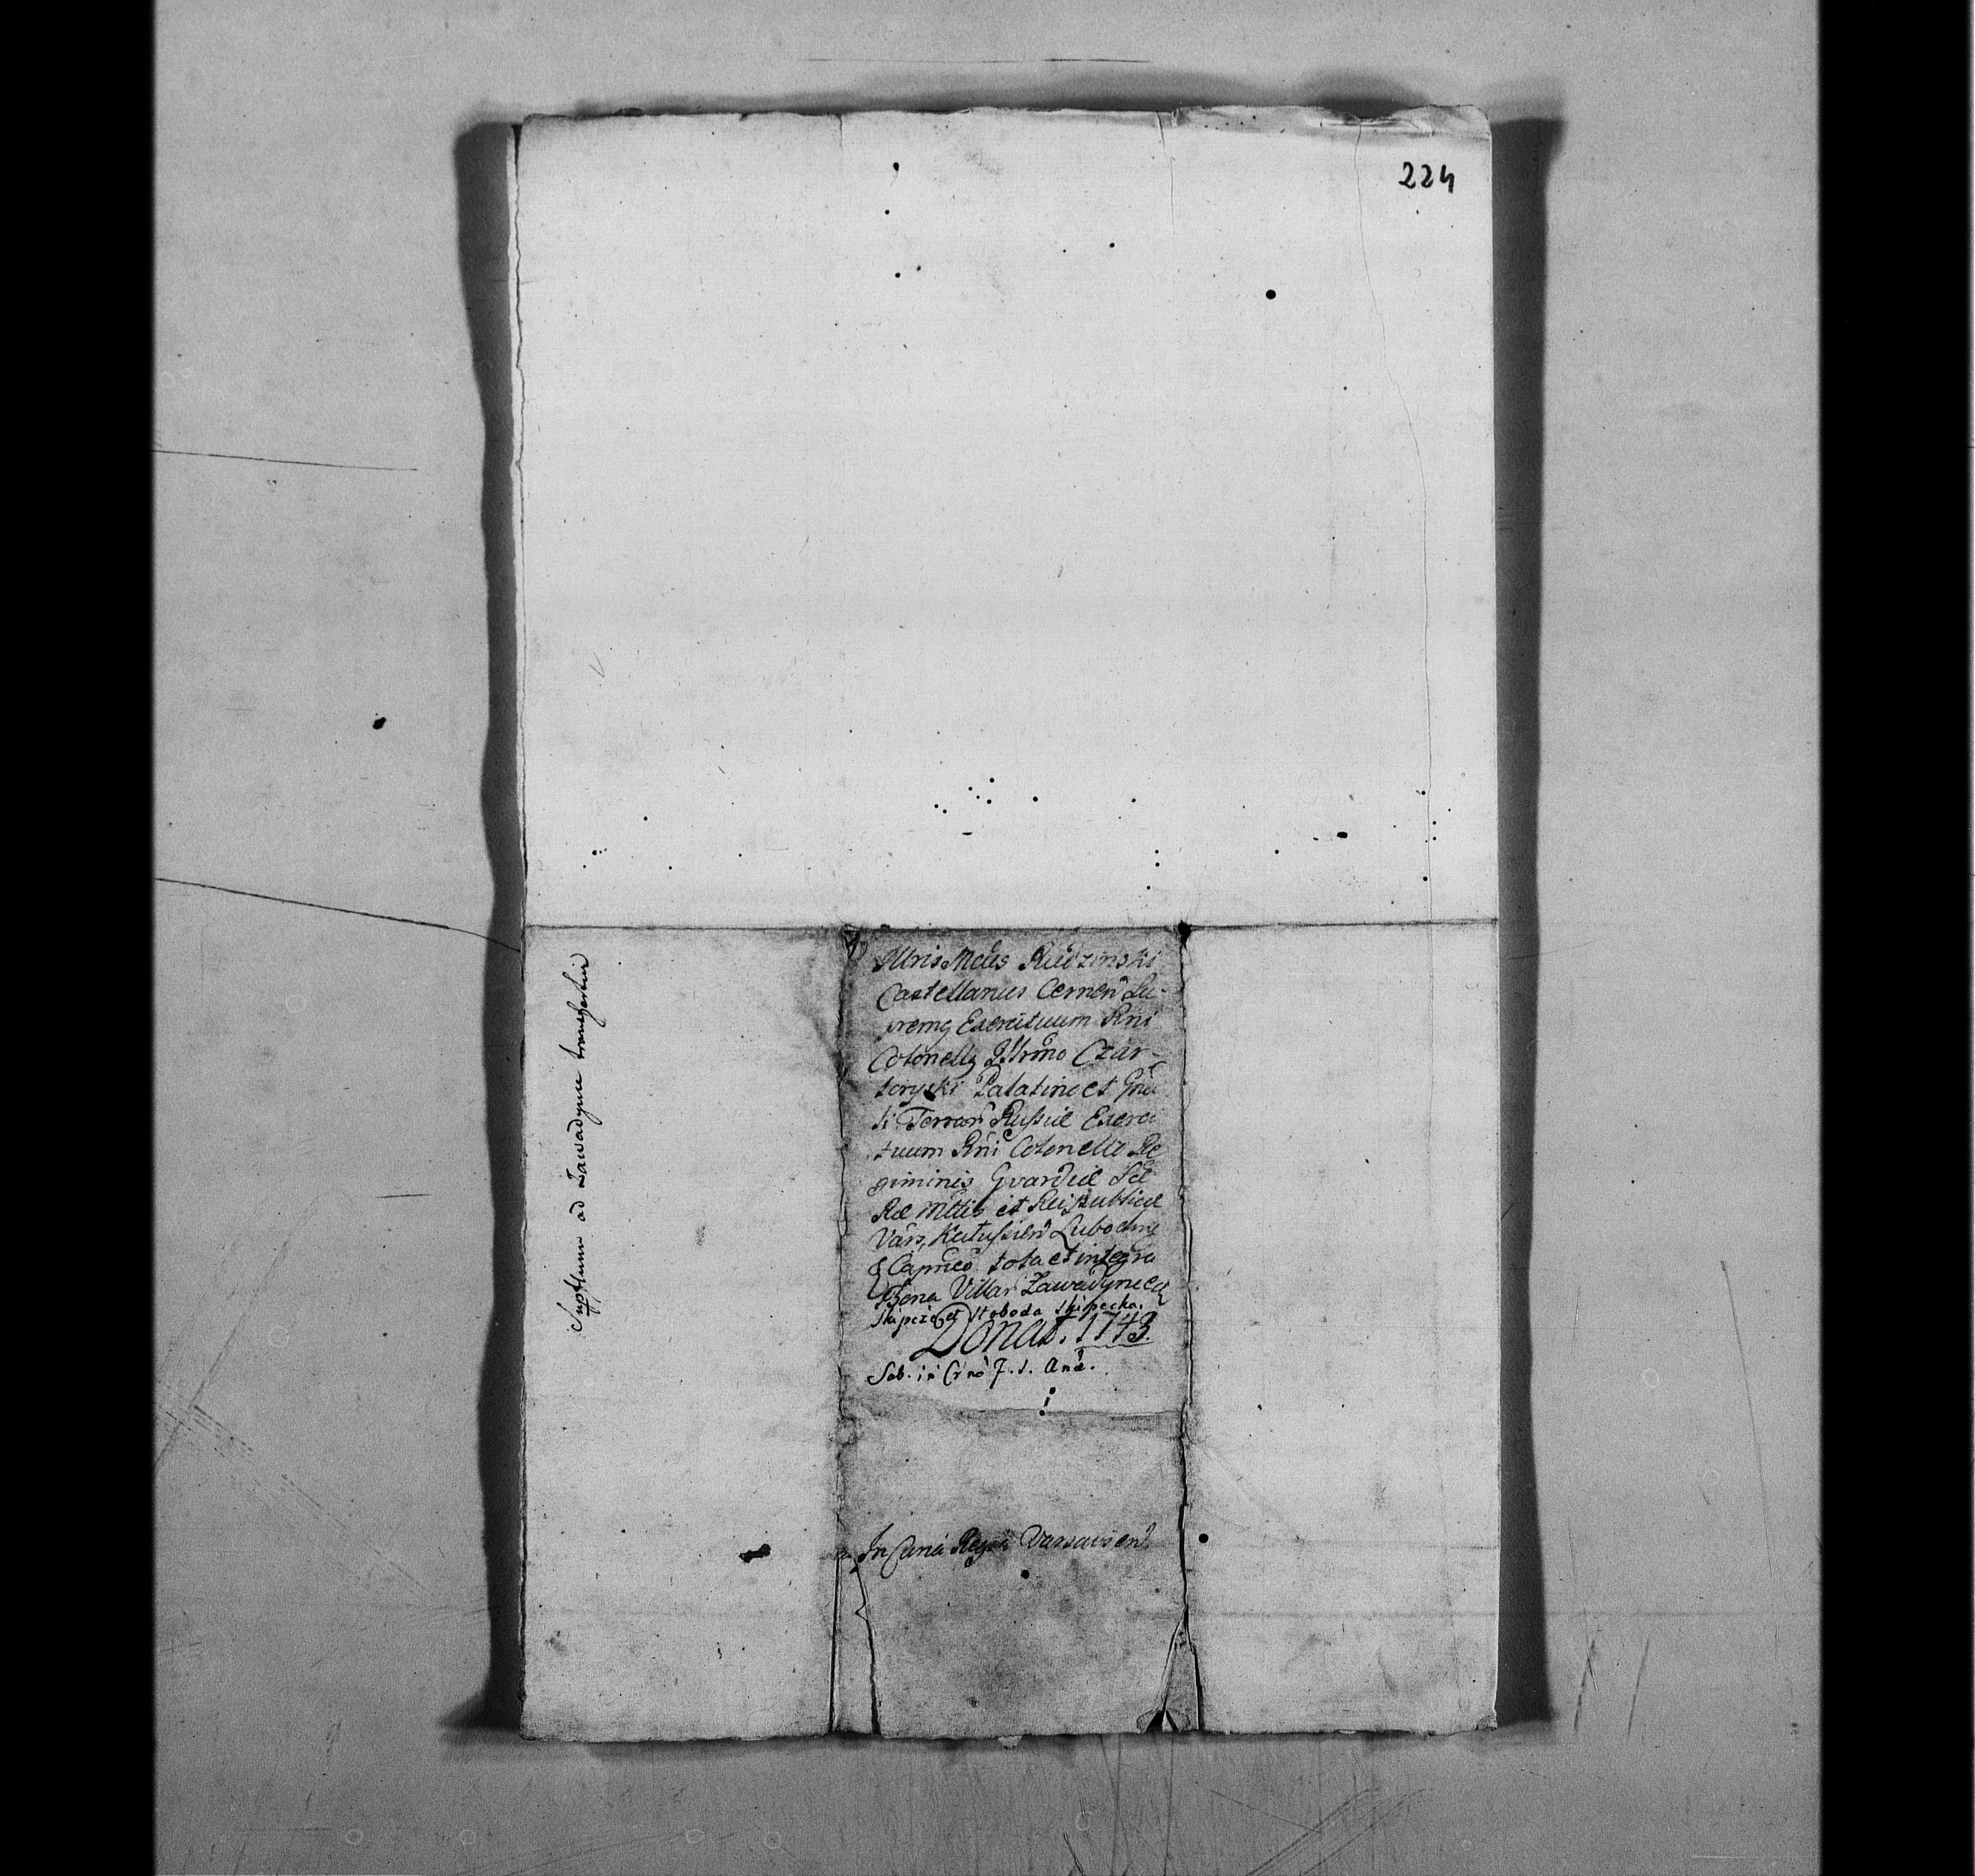 224
Illris Mcus Rudzinski
Castellanus Cernen Su-
premg Exercituum Rni
Colonellg Illrmo Czar-
toryski Palatino et Gna
li Terrar Russie Exerci
tuum Rni Colonello Re
giminis Gvardie Ped
Rae Mttis et Reipublice
Capneo tota et integra
Bona Villar Zawadynce
Skipcze et Sloboda Skipecka.
Donat. 1743.
Sab. in Crno F. S. And.
In Curia Regia Varsavien
ad Zawadynce transfertur